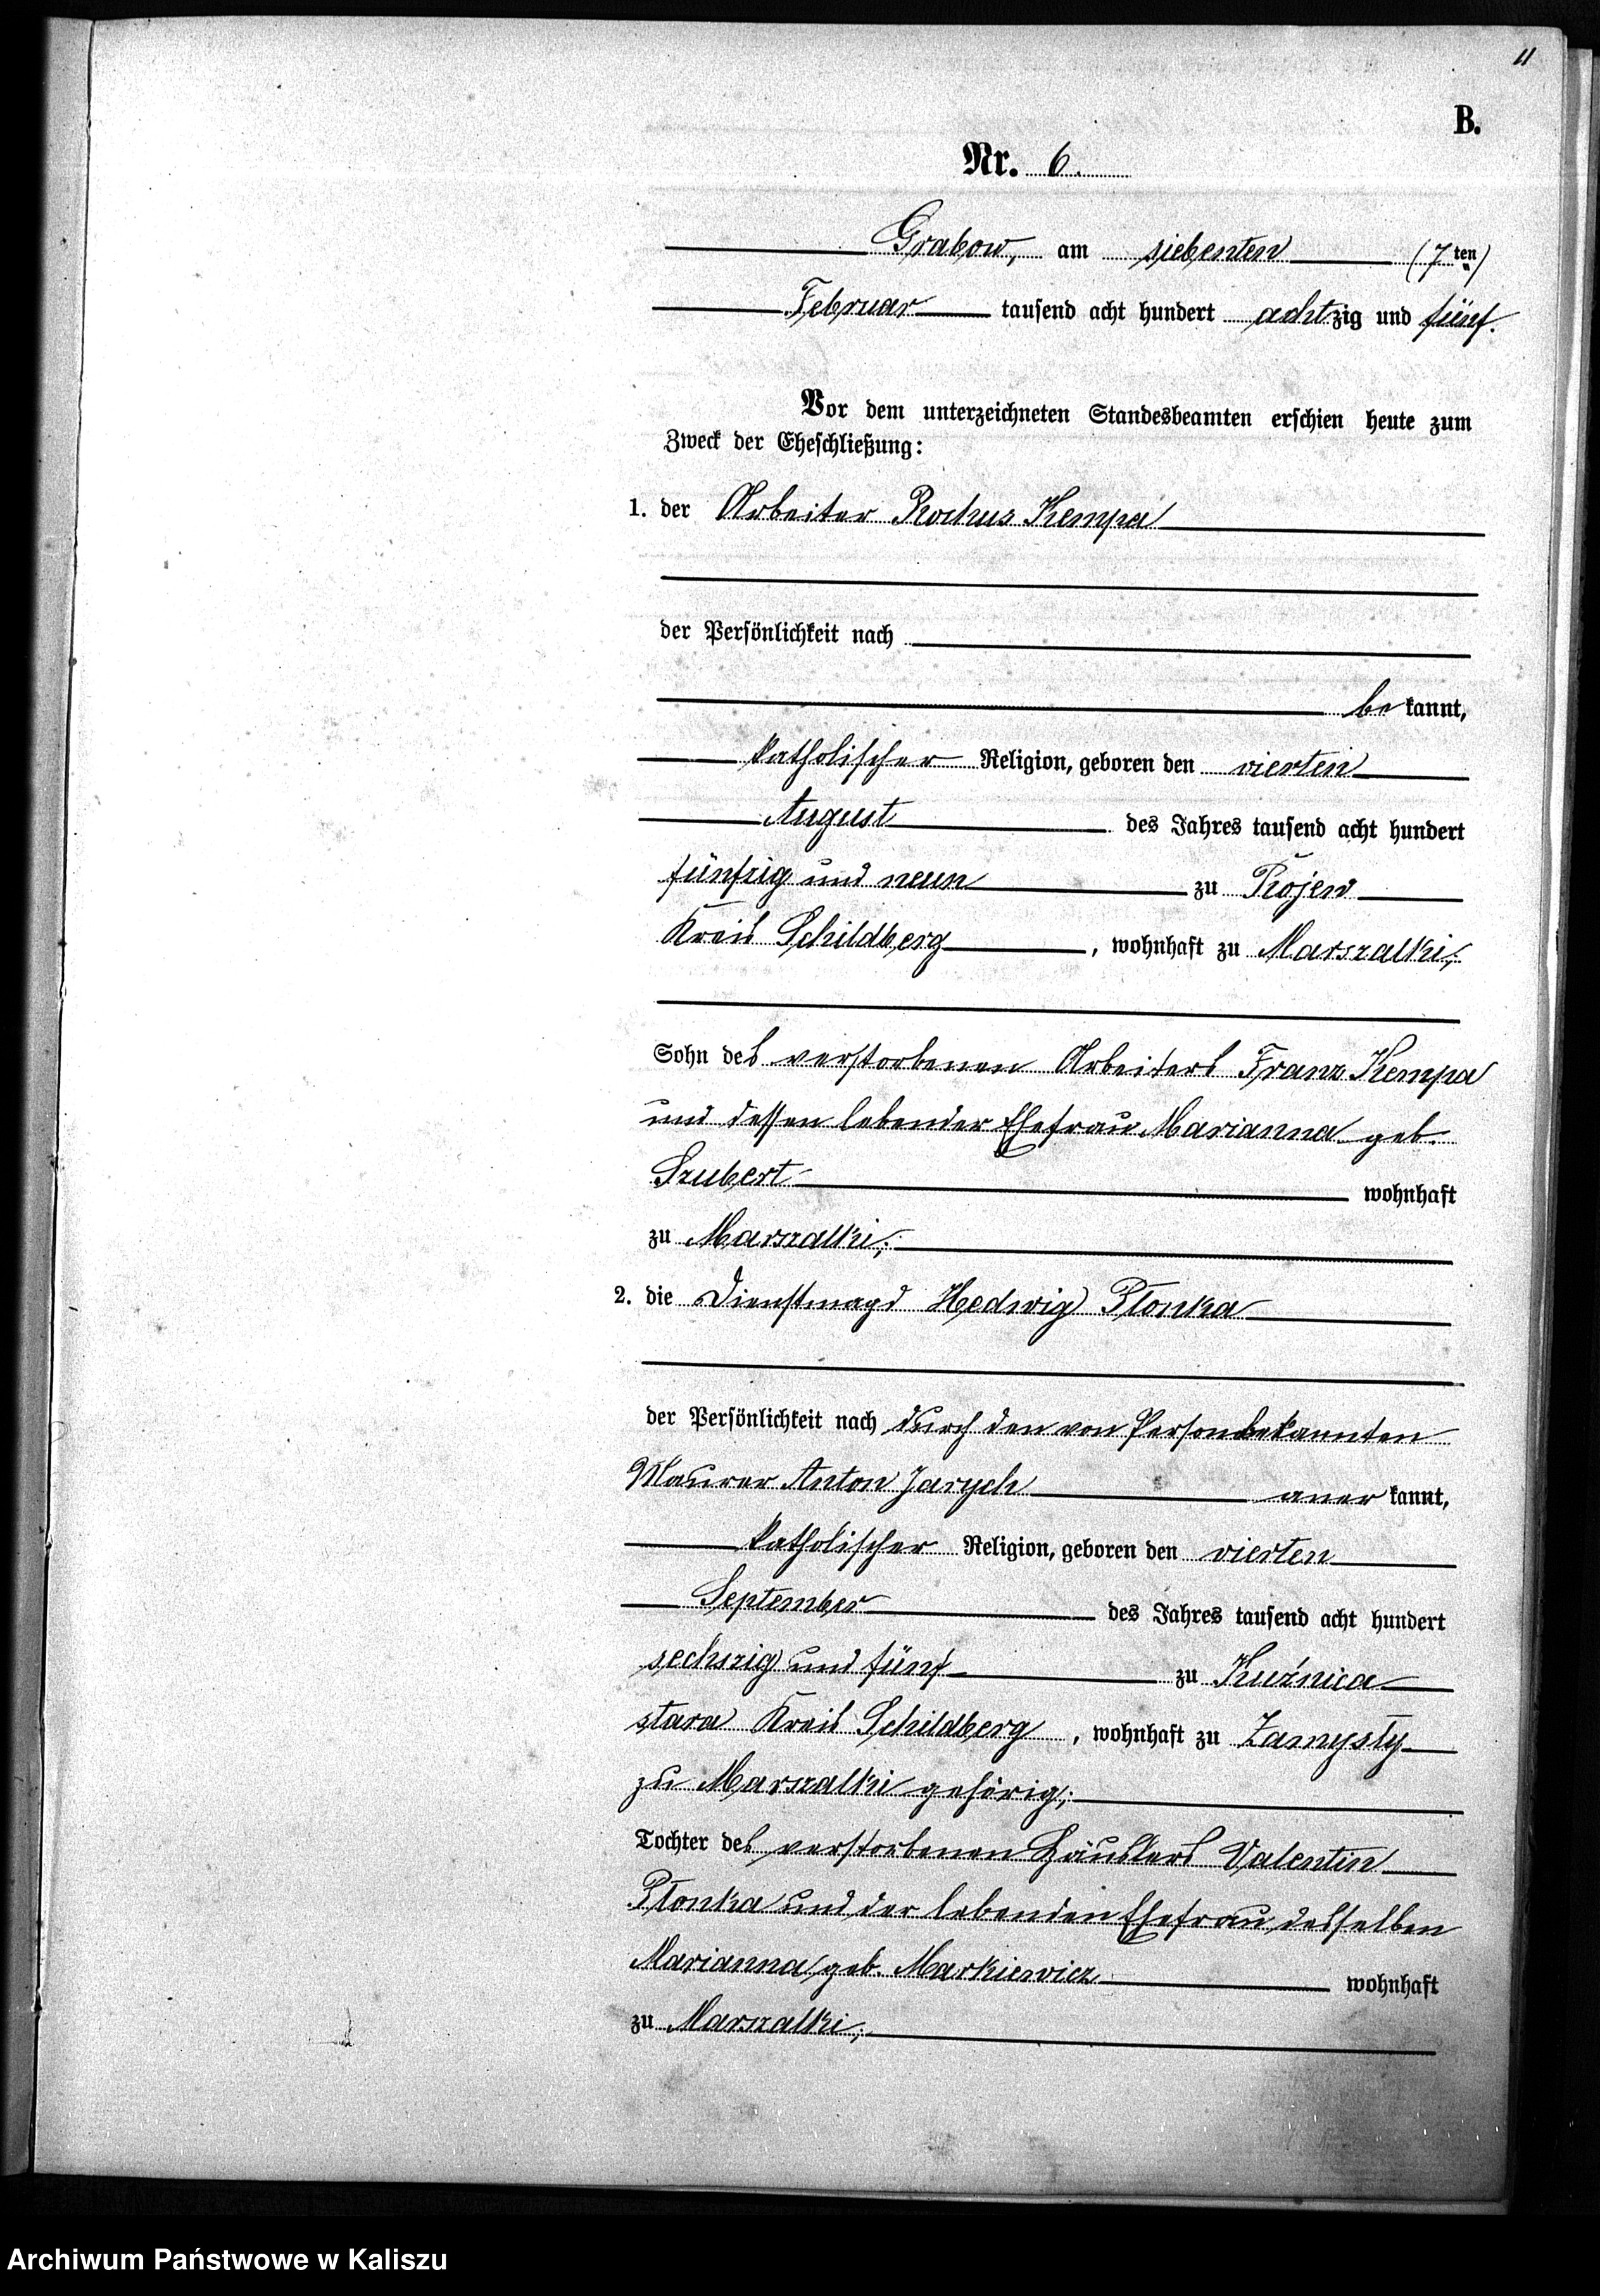 11
B.
Nr. 6.
Grabow, am siebenten (7ten)
Februar tausend acht hundert achtzig und fünf.
Vor dem unterzeichneten Standesbeamten erschien heute zum
Zweck der Eheschließung:
1. der Arbeiter Rochus Kempa
der Persönlichkeit nach
bekannt,
katholischer Religion, geboren den vierten
August des Jahres tausend acht hundert
fünfzig und neun zu Rojew
Kreis Schildberg, wohnhaft zu Marszalki;
Sohn des verstorbenen Arbeiters Franz Kempa
und dessen lebender Ehefrau Marianna geb.
Szubert wohnhaft
zu Marszalki;
2. die Dienstmagd Hedwig Płonka
der Persönlichkeit nach durch den von Person bekannten
Maurer Anton Jarych anerkannt,
katholischer Religion, geboren den vierten
September des Jahres tausend acht hundert
sechszig und fünf zu Kuźnica
stara Kreis Schildberg, wohnhaft zu Zamysły
zu Marszalki gehörig;
Tochter des verstorbenen Häuslers Valentin
Płonka und der lebenden Ehefrau desselben
Marianna geb. Markiewicz wohnhaft
zu Marszalki;
Archiwum Państwowe w Kaliszu